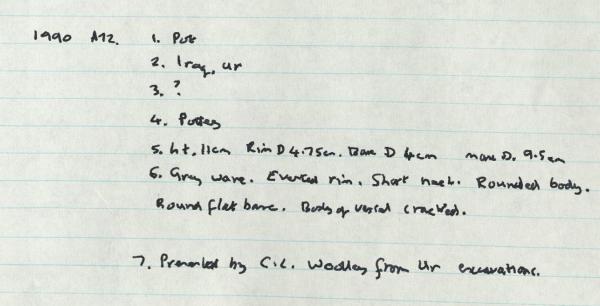 1990 A12. 1. Pot
2. Iraq, Ur
3. ?
4. Pottery
5. ht. 11cm Rim D 4.75cm. Base D 4cm max D. 9.5cm
6. Grey ware. Everted rim. Short neck. Rounded body.
Round flat base. Body of vessel cracked.
7. Presented by C.L. Woolley from Ur excavations.